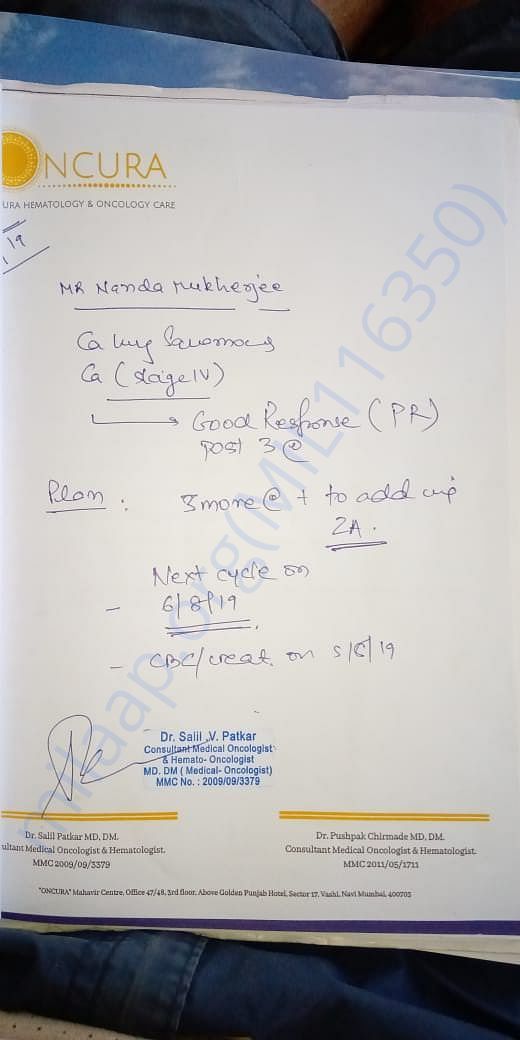 ONCURA
URA HEMATOLOGY & ONCOLOGY CARE
19
MR Nanda Mukherjee
Ca lung Squamous
Ca (stage IV)
Good Response (PR)
post 3 C
Plan :
3 more C + to add inj
ZA.
Next cycle on
- 6/8/19
- CBC/creat. on 5/8/19
milaap.org(MIL116350)
Dr. Salil .V. Patkar
Consultant Medical Oncologist
& Hemato- Oncologist
MD. DM ( Medical- Oncologist)
MMC No. : 2009/09/3379
Dr. Salil Patkar MD, DM.
ultant Medical Oncologist & Hematologist.
MMC 2009/09/3379
Dr. Pushpak Chirmade MD, DM.
Consultant Medical Oncologist & Hematologist.
MMC 2011/05/1711
"ONCURA" Mahavir Centre, Office 47/48, 3rd floor, Above Golden Punjab Hotel, Sector 17, Vashi, Navi Mumbai, 400703